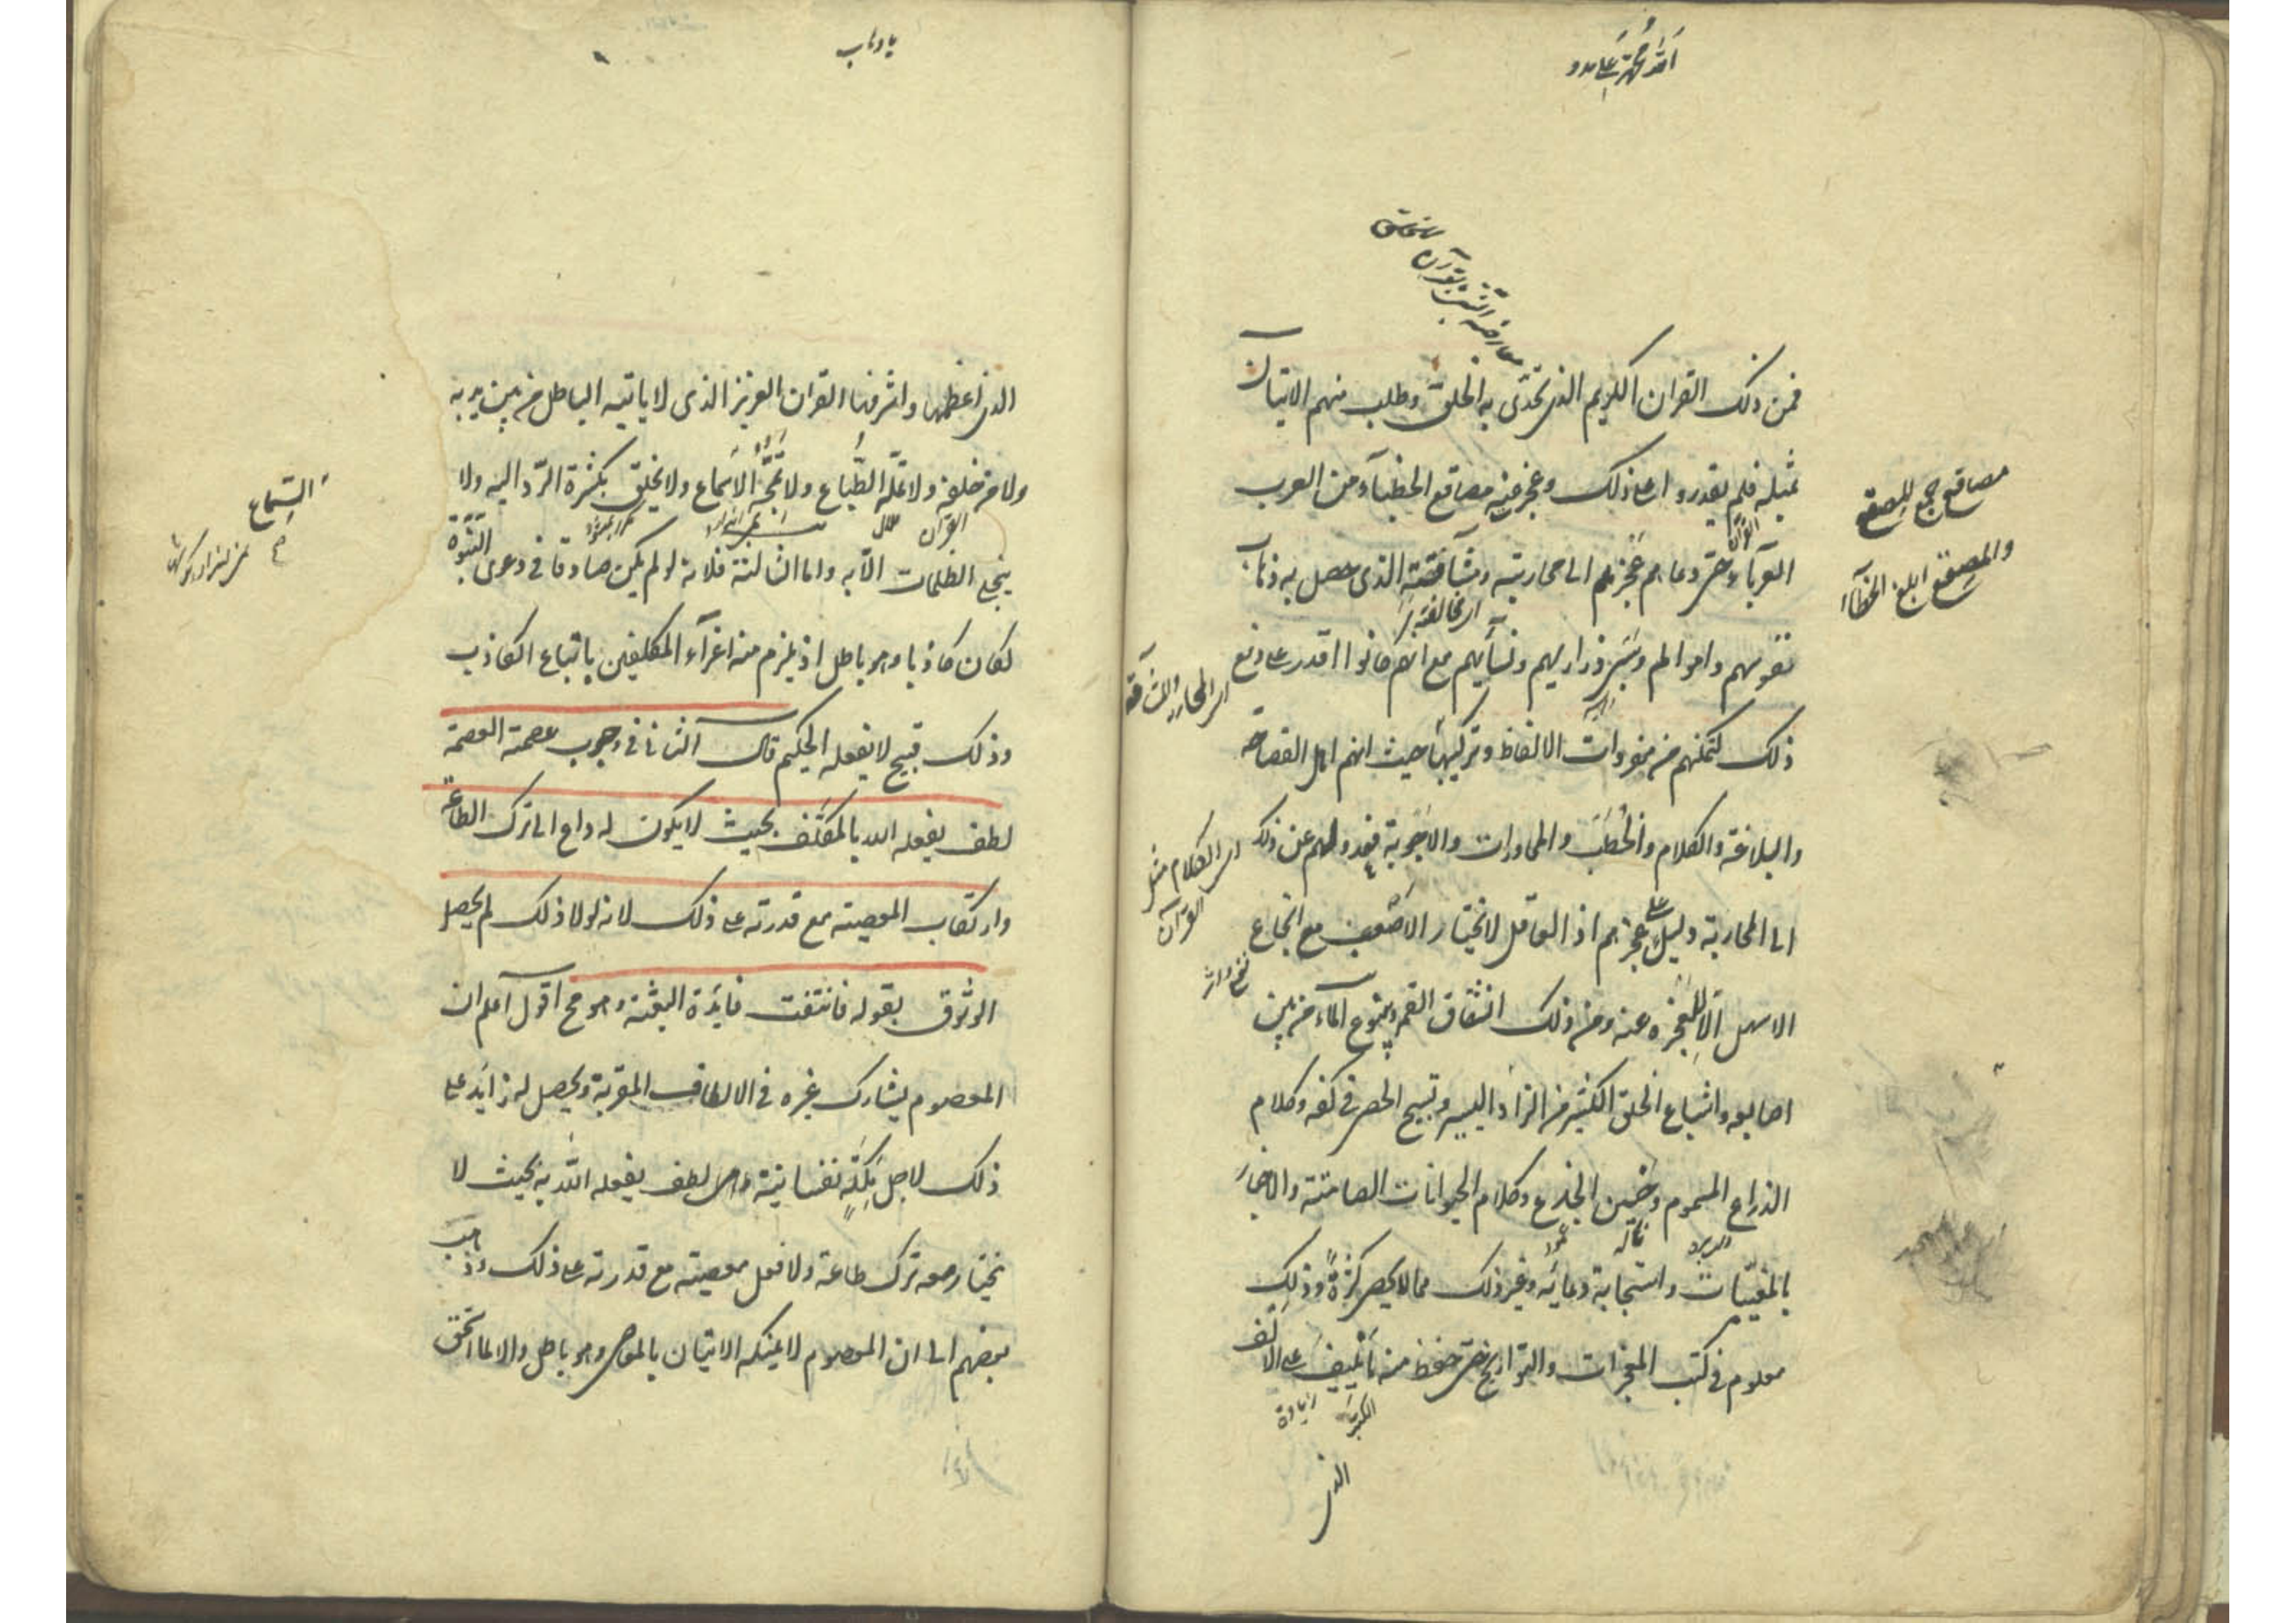 فمن ذلك القرآن الكريم الذى تحدى به الخلق وطلب منهم الاتيان
بمثله فلم يقدروا على ذلك وعجز عنه مصاقع الخطباء من العرب
العرباء حتى دعاهم عجزهم الى محاربته ومشاقته الذى حصل به ذهاب
نفوسهم واموالهم وسبى ذراريهم ونسائهم مع انهم كانوا اقدر على دفع
ذلك لتمكنهم من مفردات الالفاظ وتركيبها حيث انهم اهل الفصاحة
والبلاغة والكلام والخطب والمحاورات والاجوبة فعدولهم عن ذلك
الى المحاربة دليل على عجزهم اذ العاقل لا يختار الاصعب مع انجاع
الاسهل الا لعجزه عنه ومن ذلك انشقاق القمر ونبوع الماء من بين
اصابعه واشباع الخلق الكثير من الزاد اليسير وتسبيح الحصى فى كفه وكلام
الذراع المسموم وحنين الجذع وكلام الحيوانات الصامتة والاخبار
بالمغيبات واستجابة دعائه وغير ذلك مما لا يحصى كثرة وذلك
معلوم فى كتب المعجزات والتواريخ حتى حفظ منه ما ينيف على الالف
الذى
مصاقع جمع المصقع
والمصقع ابلغ الخطباء
اى الكلام مثل
القرآن
الذى اعظمها واشرفها القرآن العزيز الذى لا ياتيه الباطل من بين يديه
ولا من خلفه ولا تمله الطباع ولا تمجه الاسماع ولا يخلق بكثرة الرد اليه ولا
ينجلى الظلمات الا به واما الثالثة فلانه لو لم يكن صادقا فى دعوى النبوة
لكان كاذبا وهو باطل اذ يلزم منه اغراء المكلفين باتباع الكاذب
وذلك قبيح لا يفعله الحكيم قال الثانى فى وجوب عصمته العصمة
لطف يفعله الله بالمكلف بحيث لا يكون له داع الى ترك الطاعة
وارتكاب المعصية مع قدرته على ذلك لانه لولا ذلك لم يحصل
الوثوق بقوله فانتفت فايدة البعثة وهو مح اقول اعلم ان
المعصوم يشارك غيره فى الالطاف المقربة ويحصل له زائد على
ذلك لاجل ملكة نفسانية لطف يفعله الله به بحيث لا
يختار معه ترك طاعة ولا فعل معصية مع قدرته على ذلك وذهب
بعضهم الى ان المعصوم لا يمكنه الاتيان بالمعاصى وهو باطل والا لما استحق